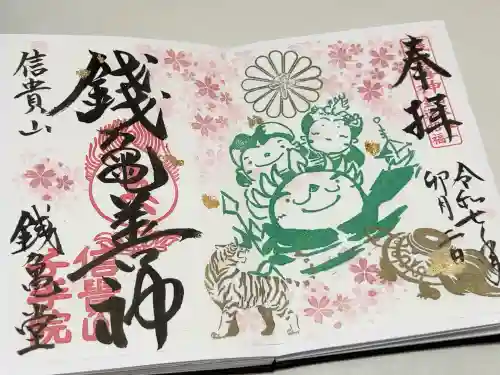 奉拝
令和七年
卯月二日
信貴山
銭亀善神
銭亀堂
信貴山
千手院